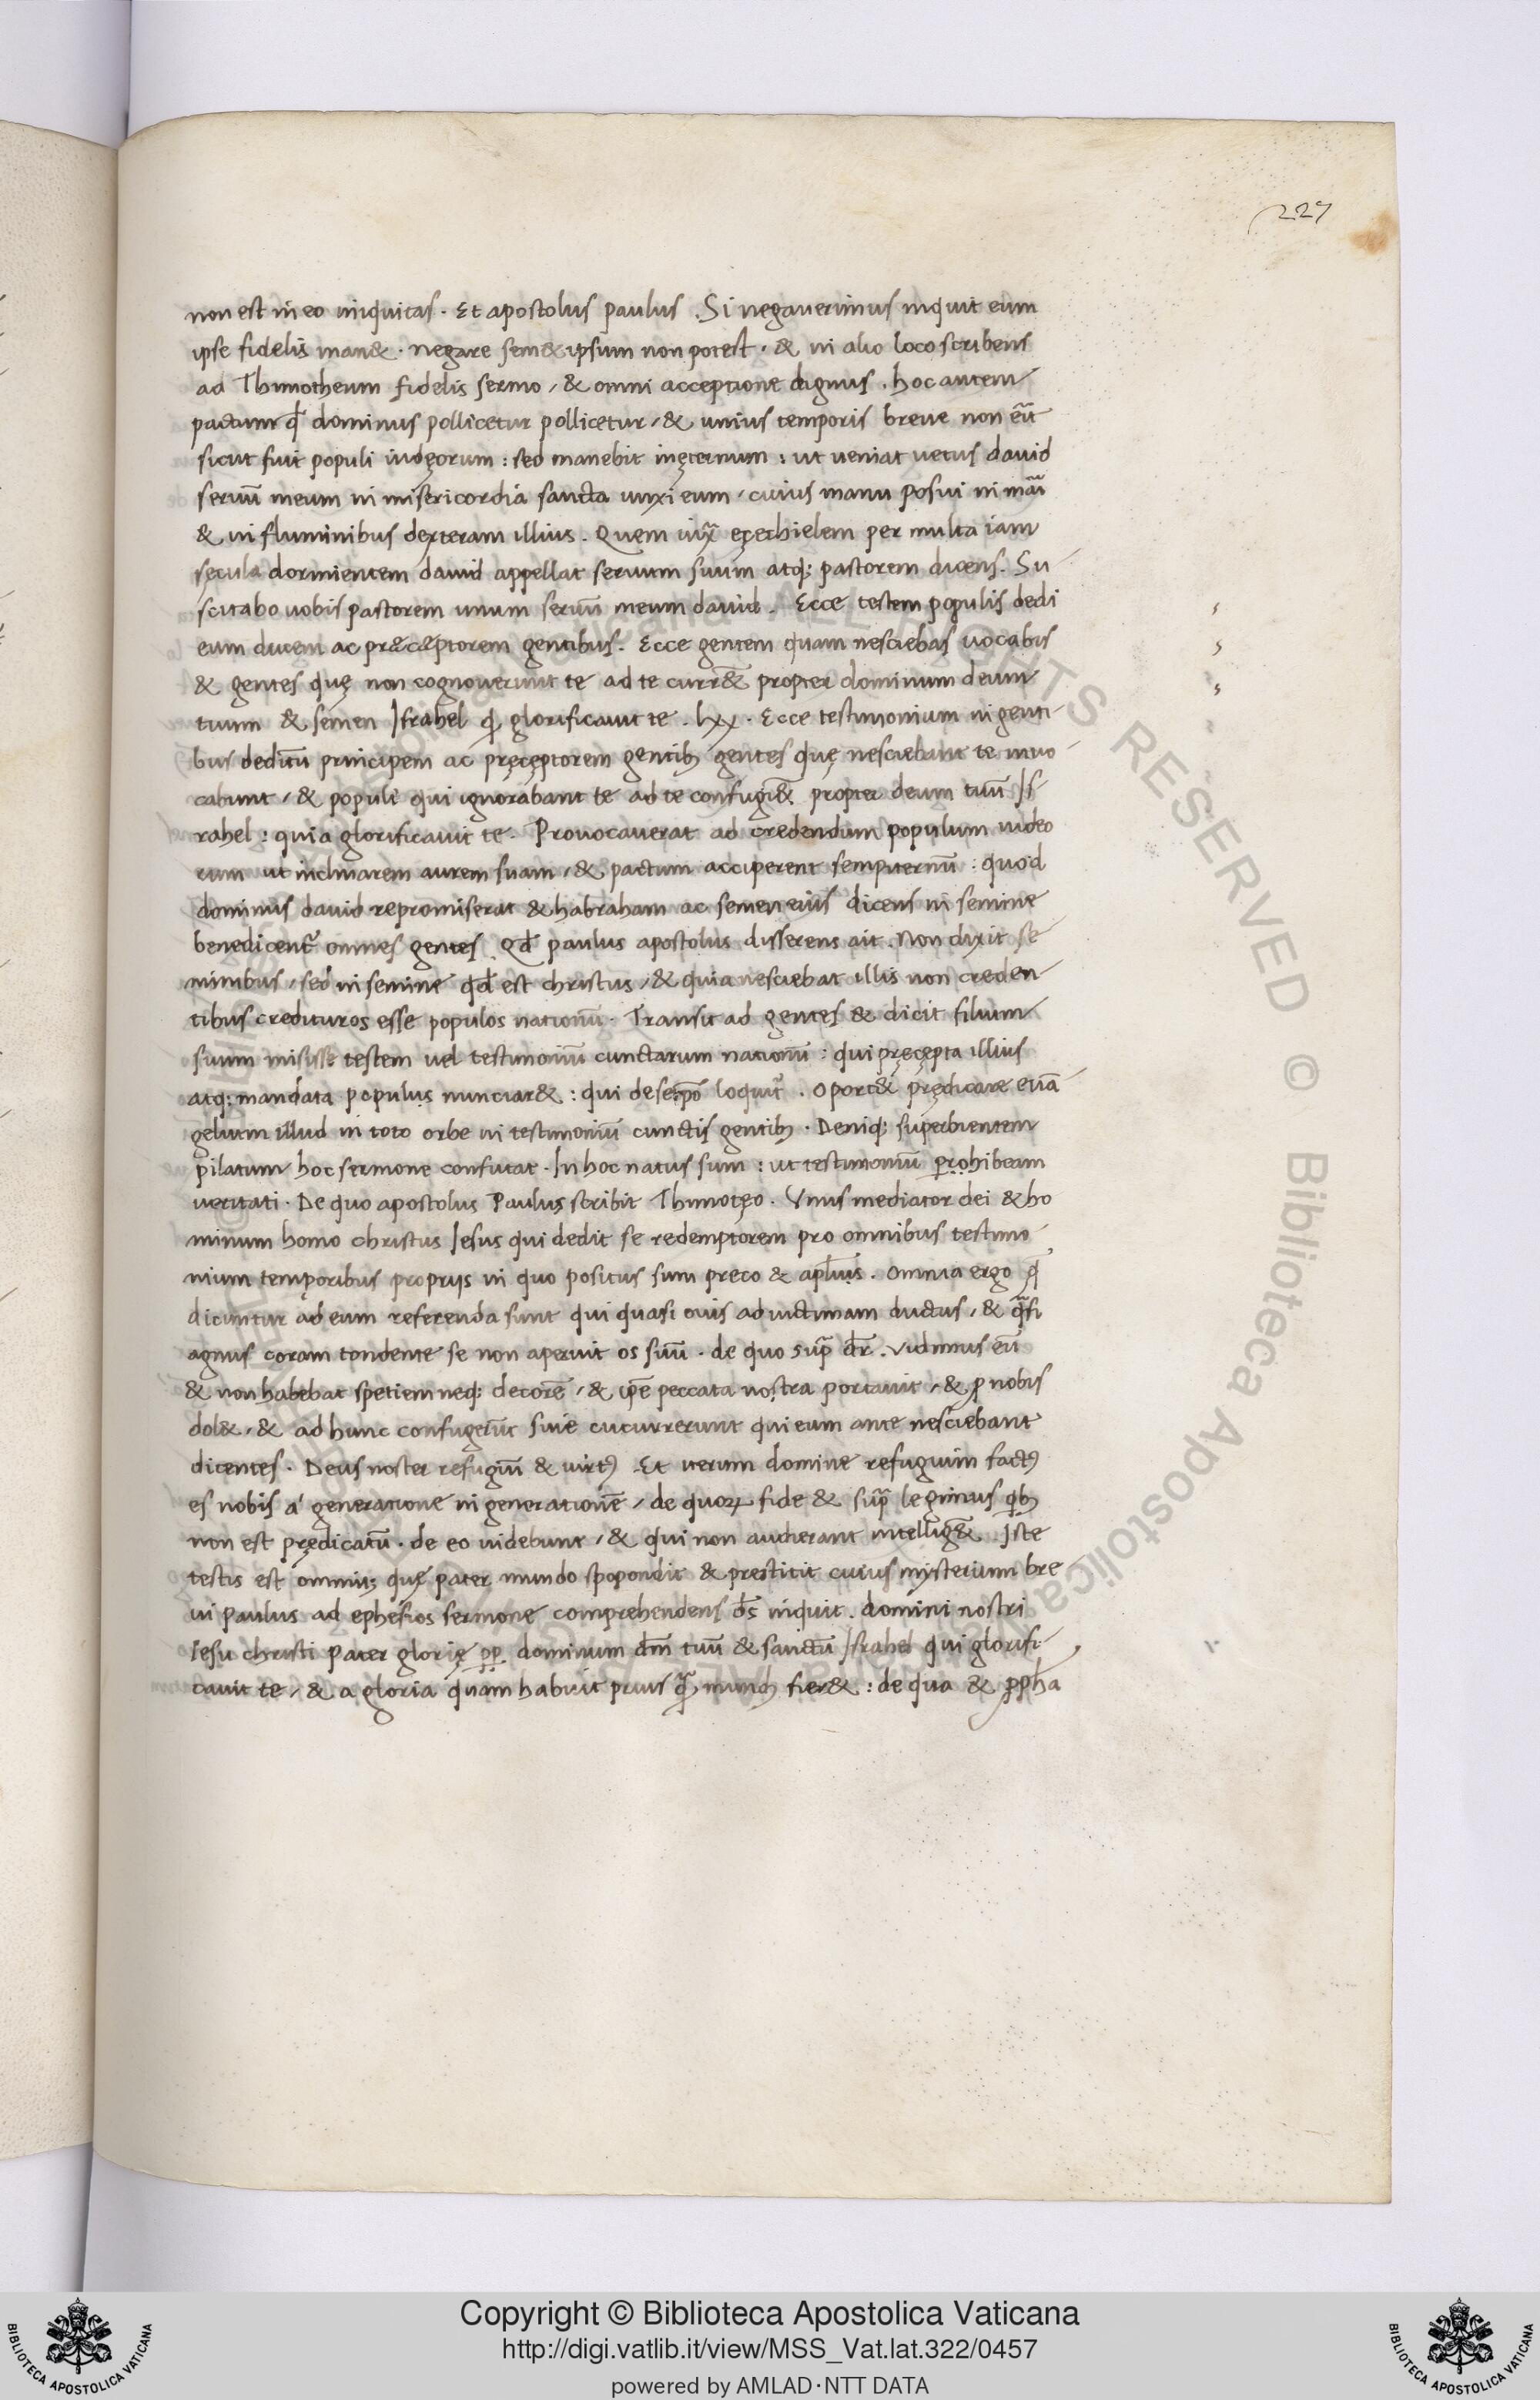 227
non est in eo iniquitas . Et apostolus paulus . Si negauerimus inquit eum
ipse fidelis man& . negare sem& ipsum non potest , & in alio loco scribens
ad Thimotheum fidelis sermo , & omni acceptione dignus . hoc autem
pactum qđ dominus pollicetur pollicetur , & unius temporis breue non eı̃t
sicut fuit populi iudęorum : sed manebit inęternum : ut ueniat uetus dauid
seruū meum in misericordia sancta unxi eum , cuius manu posui in mãi
& in fluminibus dexteram illius . Quem iux̃ ezechielem per multa iam
sęcula dormientem dauid appellat seruum suum atq; pastorem dicens . Su
scitabo uobis pastorem unum seruū meum dauid . Ecce testem populis dedi
eum ducem ac præcæptorem gentibus . Ecce gentem quam nesciebas uocabis
& gentes quę non cognouerunt te ad te curr& propter dominum deum
tuum & semen Israhel q glorificauit te . lxx . Ecce testimonium in genti
bus deditū principem ac pręcęptorem gentib; gentes quę nesciebant te inuo
cabunt , & populi qui ignorabant te ad te confugi& propter deum tuū Is
rahel : quia glorificauit te . Prouocauerat ad credendum populum iudeo
rum ut inclinarem aurem suam , & pactum acciperent sempiternū : quod
dominus dauid repromiserat & habraham ac semen eius dicens in semine
benedicent᷑ omnes gentes . Qđ paulus apostolus disserens ait . Non dixit se
minibus , sed in semine qđ est christus , & quia nesciebat illis non creden
tibus credituros esse populos nationū . Transit ad gentes & dicit filium
suum misisse testem uel testimoniū cunctarum nationū : qui pręcepta illius
atq; mandata populis nunciar& : qui de seipo loquit᷑ . oport& prędicare euā
gelium illud in toto orbe in testimoniū cunctis gentib; . Deniq; superbientem
pilatum hoc sermone confutat . In hoc natus sum : ut testimoniū prohibeam
ueritati . De quo apostolus Paulus scribit Thimotęo . Vnus mediator dei & ho
minum homo christus Iesus qui dedit se redemptorem pro omnibus testimo
nium temporibus proprijs in quo positus sum preco & apĺus . omnia ergo q̄
dicuntur ad eum referenda sunt qui quasi ouis ad uictimam ductus , & q̃si
agnus coram tondente se non aperuit os suū . de quo sup̃ dr̄ . Vidimus eū
& non habebat spetiem neq; decorē , & ip̄e peccata nostra portauit , & p nobis
dol& , & ad hunc confugeīut siue cucurrerunt qui eum ante nesciebant
dicentes . Deus noster refugiū & uirt9 . Et uerum domine refugium fact9
es nobis á generatione in generationē , de quoꝝ fide & sup̃ legimus qb;
non est prędicatū . de eo uidebunt , & qui non audierant intellig& . Iste
testis est omniū; quę pater mundo spopondit & prestitit cuius mysterium bre
ui paulus ad ephesios sermone comprehendens ds̄ inquit . domini nostri
Iesu christi pater glorię pp dominum dm̄ tuū & sanctū Israhel qui glorifi
cauit te , & a gloria quam habuit prius q̃ mund9 fier& : de qua & ppha
Copyright © Biblioteca Apostolica Vaticana
http://digi.vatlib.it/view/MSS_Vat.lat.322/0457
powered by AMLAD·NTT DATA
BIBLIOTECA APOSTOLICA VATICANA
BIBLIOTECA APOSTOLICA VATICANA